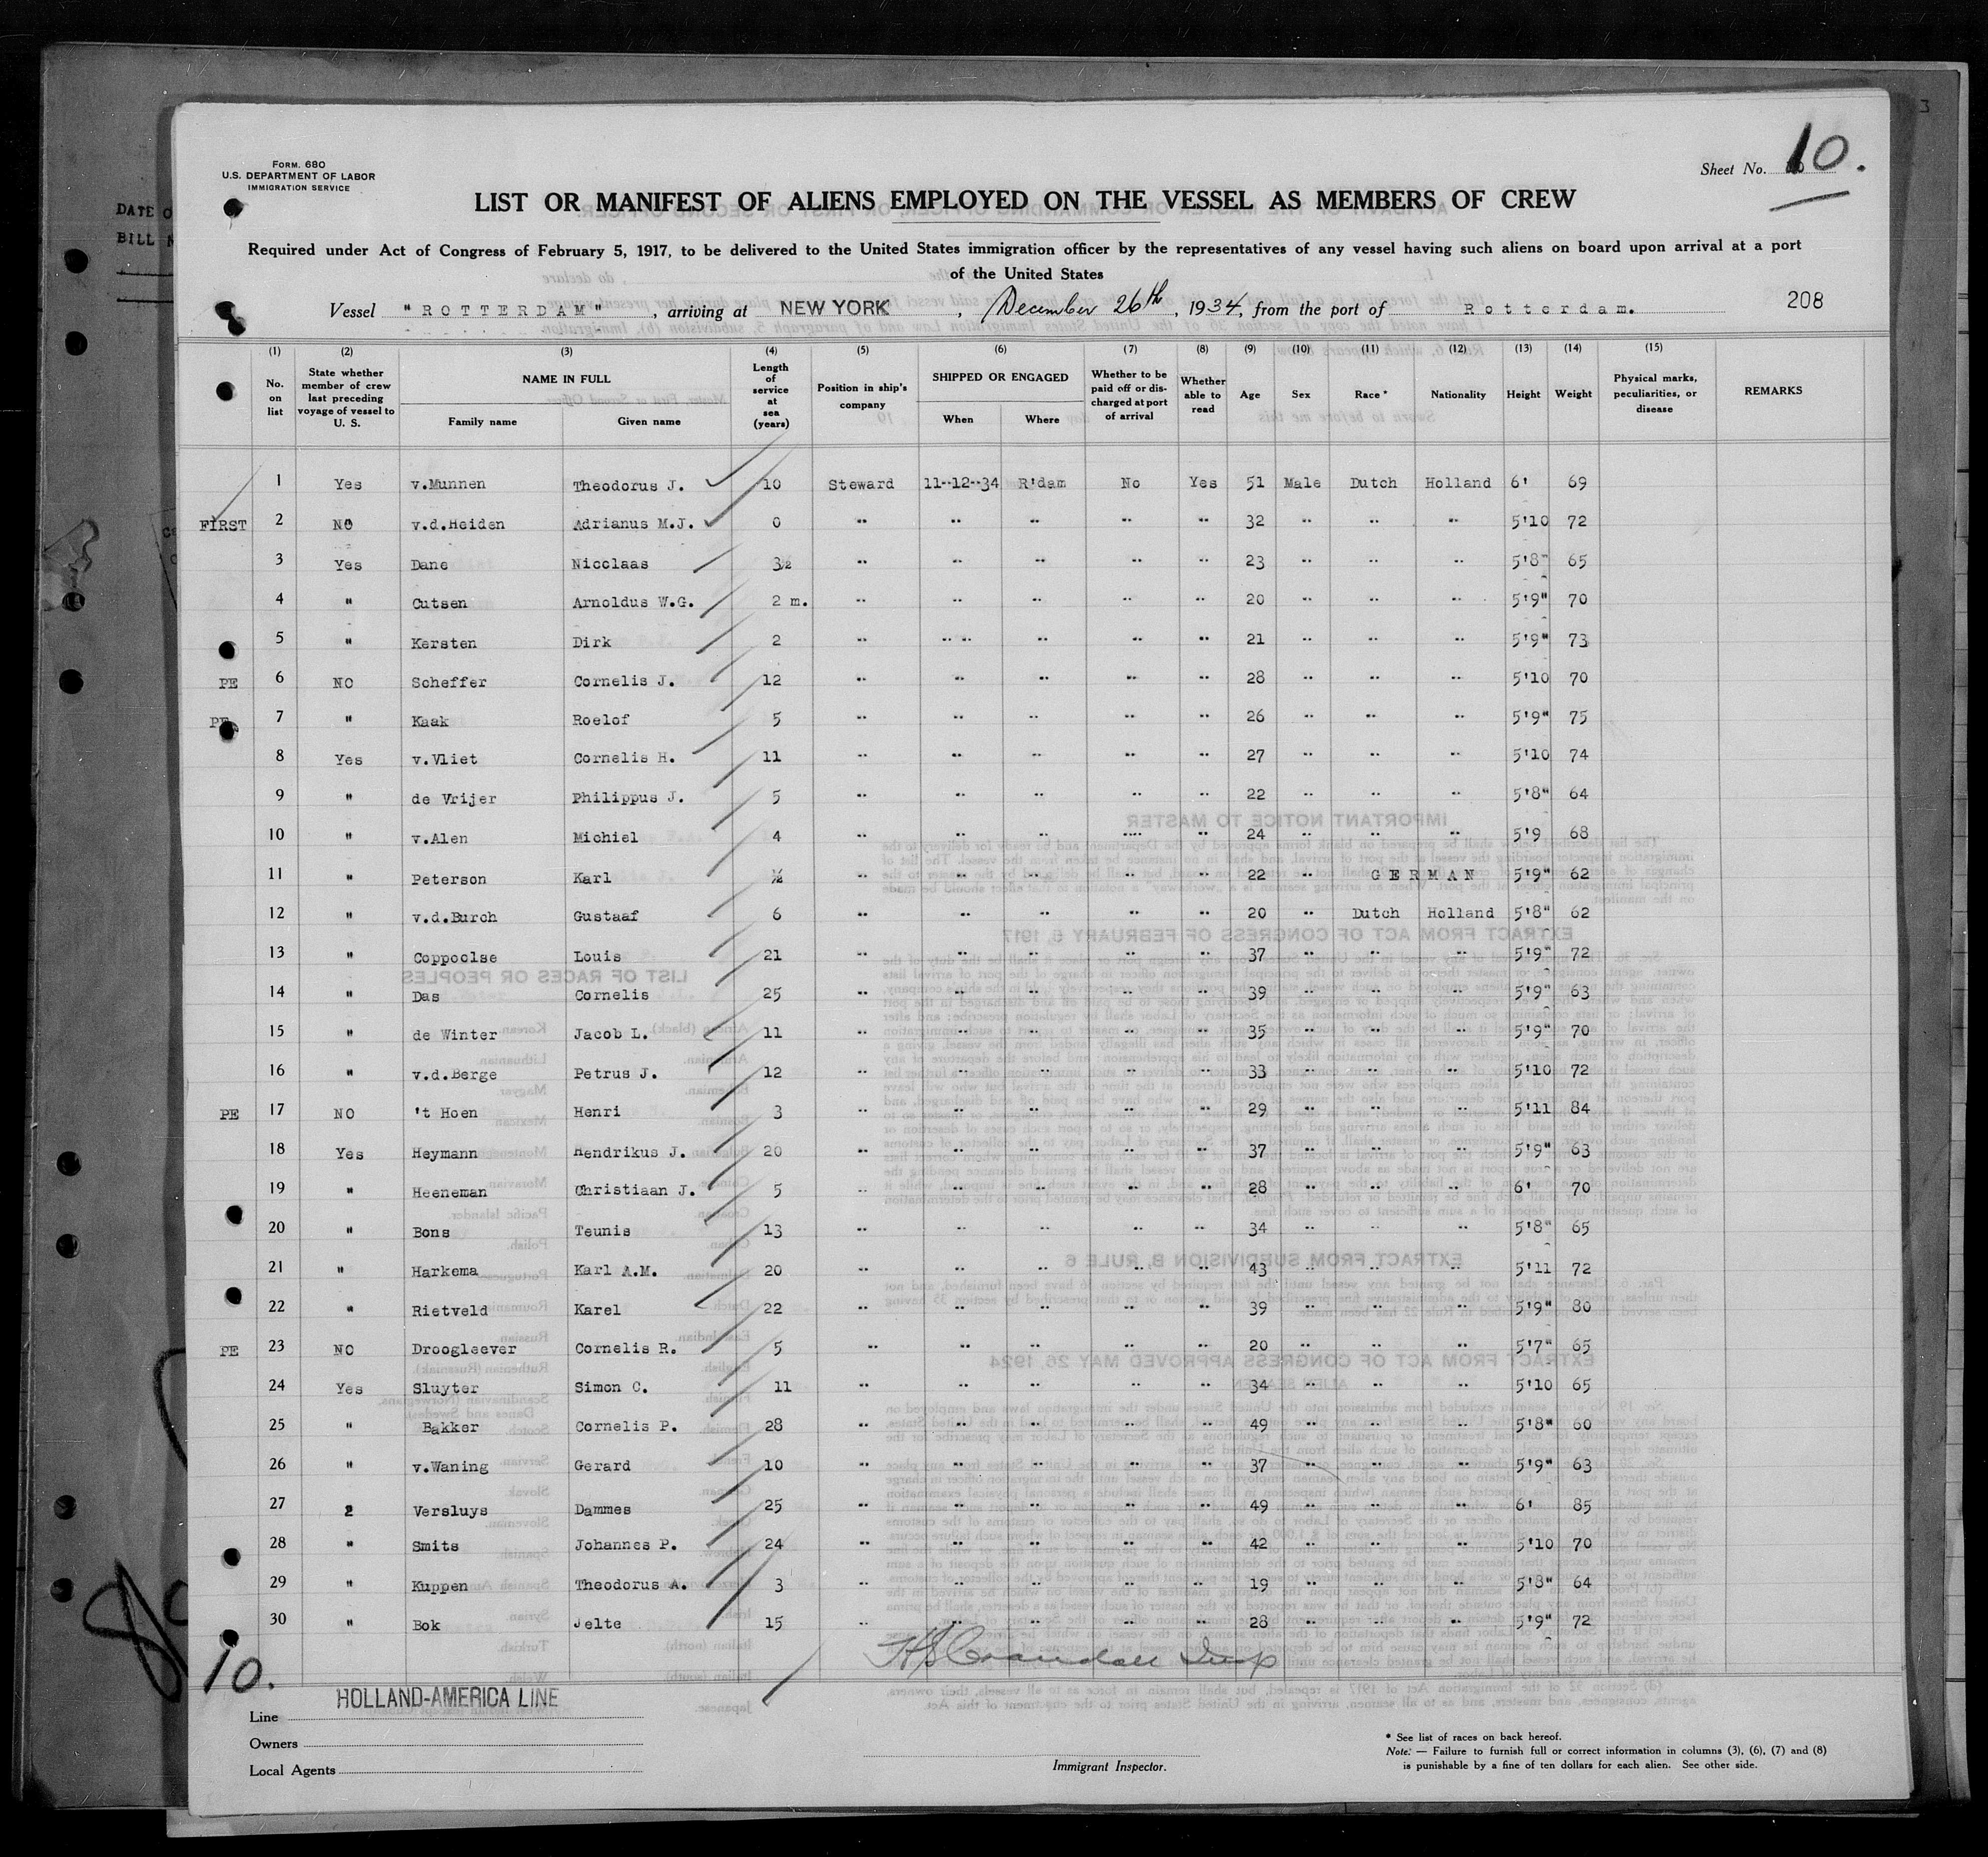 DATE O
BILL
3
FORM. 680
U.S. DEPARTMENT OF LABOR
IMMIGRATION SERVICE
Sheet No. 10.
LIST OR MANIFEST OF ALIENS EMPLOYED ON THE VESSEL AS MEMBERS OF CREW
Required under Act of Congress of February 5, 1917, to be delivered to the United States immigration officer by the representatives of any vessel having such aliens on board upon arrival at a port
of the United States
Vessel "ROTTERDAM", arriving at NEW YORK, December 26th, 1934, from the port of Rotterdam. 208
(1) (2) (3) (4) (5) (6) (7) (8) (9) (10) (11) (12) (13) (14) (15)
No. on list | State whether member of crew last preceding voyage of vessel to U. S. | NAME IN FULL Family name Given name | Length of service at sea (years) | Position in ship's company | SHIPPED OR ENGAGED When Where | Whether to be paid off or discharged at port of arrival | Whether able to read | Age | Sex | Race* | Nationality | Height | Weight | Physical marks, peculiarities, or disease | REMARKS
1 Yes v.Munnen Theodorus J. 10 Steward 11-12-34 R'dam No Yes 51 Male Dutch Holland 6' 69
FIRST 2 NO v.d.Heiden Adrianus M.J. 0 " " " " " 32 " " " 5'10 72
3 Yes Dane Nicolaas 3½ " " " " " 23 " " " 5'8" 65
4 " Cutsen Arnoldus W.G. 2 m. " " " " " 20 " " " 5'9" 70
5 " Kersten Dirk 2 " " " " " 21 " " " 5'9" 73
PE 6 NO Scheffer Cornelis J. 12 " " " " " 28 " " " 5'10 70
PE 7 " Kaak Roelof 5 " " " " " 26 " " " 5'9" 75
8 Yes v.Vliet Cornelis H. 11 " " " " " 27 " " " 5'10 74
9 " de Vrijer Philippus J. 5 " " " " " 22 " " " 5'8" 64
10 " v.Alen Michiel 4 " " " " " 24 " " " 5'9 68
11 " Peterson Karl ½ " " " " " 22 " GERMAN 5'9" 62
12 " v.d.Burch Gustaaf 6 " " " " " 20 " Dutch Holland 5'8" 62
13 " Coppoolse Louis 21 " " " " " 37 " " " 5'9" 72
14 " Das Cornelis 25 " " " " " 39 " " " 5'9" 63
15 " de Winter Jacob L. 11 " " " " " 35 " " " 5'9" 70
16 " v.d.Berge Petrus J. 12 " " " " " 33 " " " 5'10 72
PE 17 NO 't Hoen Henri 3 " " " " " 29 " " " 5'11 84
18 Yes Heymann Hendrikus J. 20 " " " " " 37 " " " 5'9" 63
19 " Heeneman Christiaan J. 5 " " " " " 28 " " " 6' 70
20 " Bons Teunis 13 " " " " " 34 " " " 5'8" 65
21 " Harkema Karl A.M. 20 " " " " " 43 " " " 5'11 72
22 " Rietveld Karel 22 " " " " " 39 " " " 5'9" 80
PE 23 NO Droogleever Cornelis R. 5 " " " " " 20 " " " 5'7" 65
24 Yes Sluyter Simon C. 11 " " " " " 34 " " " 5'10 65
25 " Bakker Cornelis P. 28 " " " " " 49 " " " 5'8" 60
26 " v.Waning Gerard 10 " " " " " 37 " " " 5'9" 63
27 2 Versluys Dammes 25 " " " " " 49 " " " 6' 85
28 " Smits Johannes P. 24 " " " " " 42 " " " 5'10 70
29 " Kuppen Theodorus A. 3 " " " " " 19 " " " 5'8" 64
30 " Bok Jelte 15 " " " " " 28 " " " 5'9" 72
H S Crandall Insp
10.
HOLLAND-AMERICA LINE
Line
Owners
Local Agents
Immigrant Inspector.
* See list of races on back hereof.
Note: — Failure to furnish full or correct information in columns (3), (6), (7) and (8)
is punishable by a fine of ten dollars for each alien. See other side.